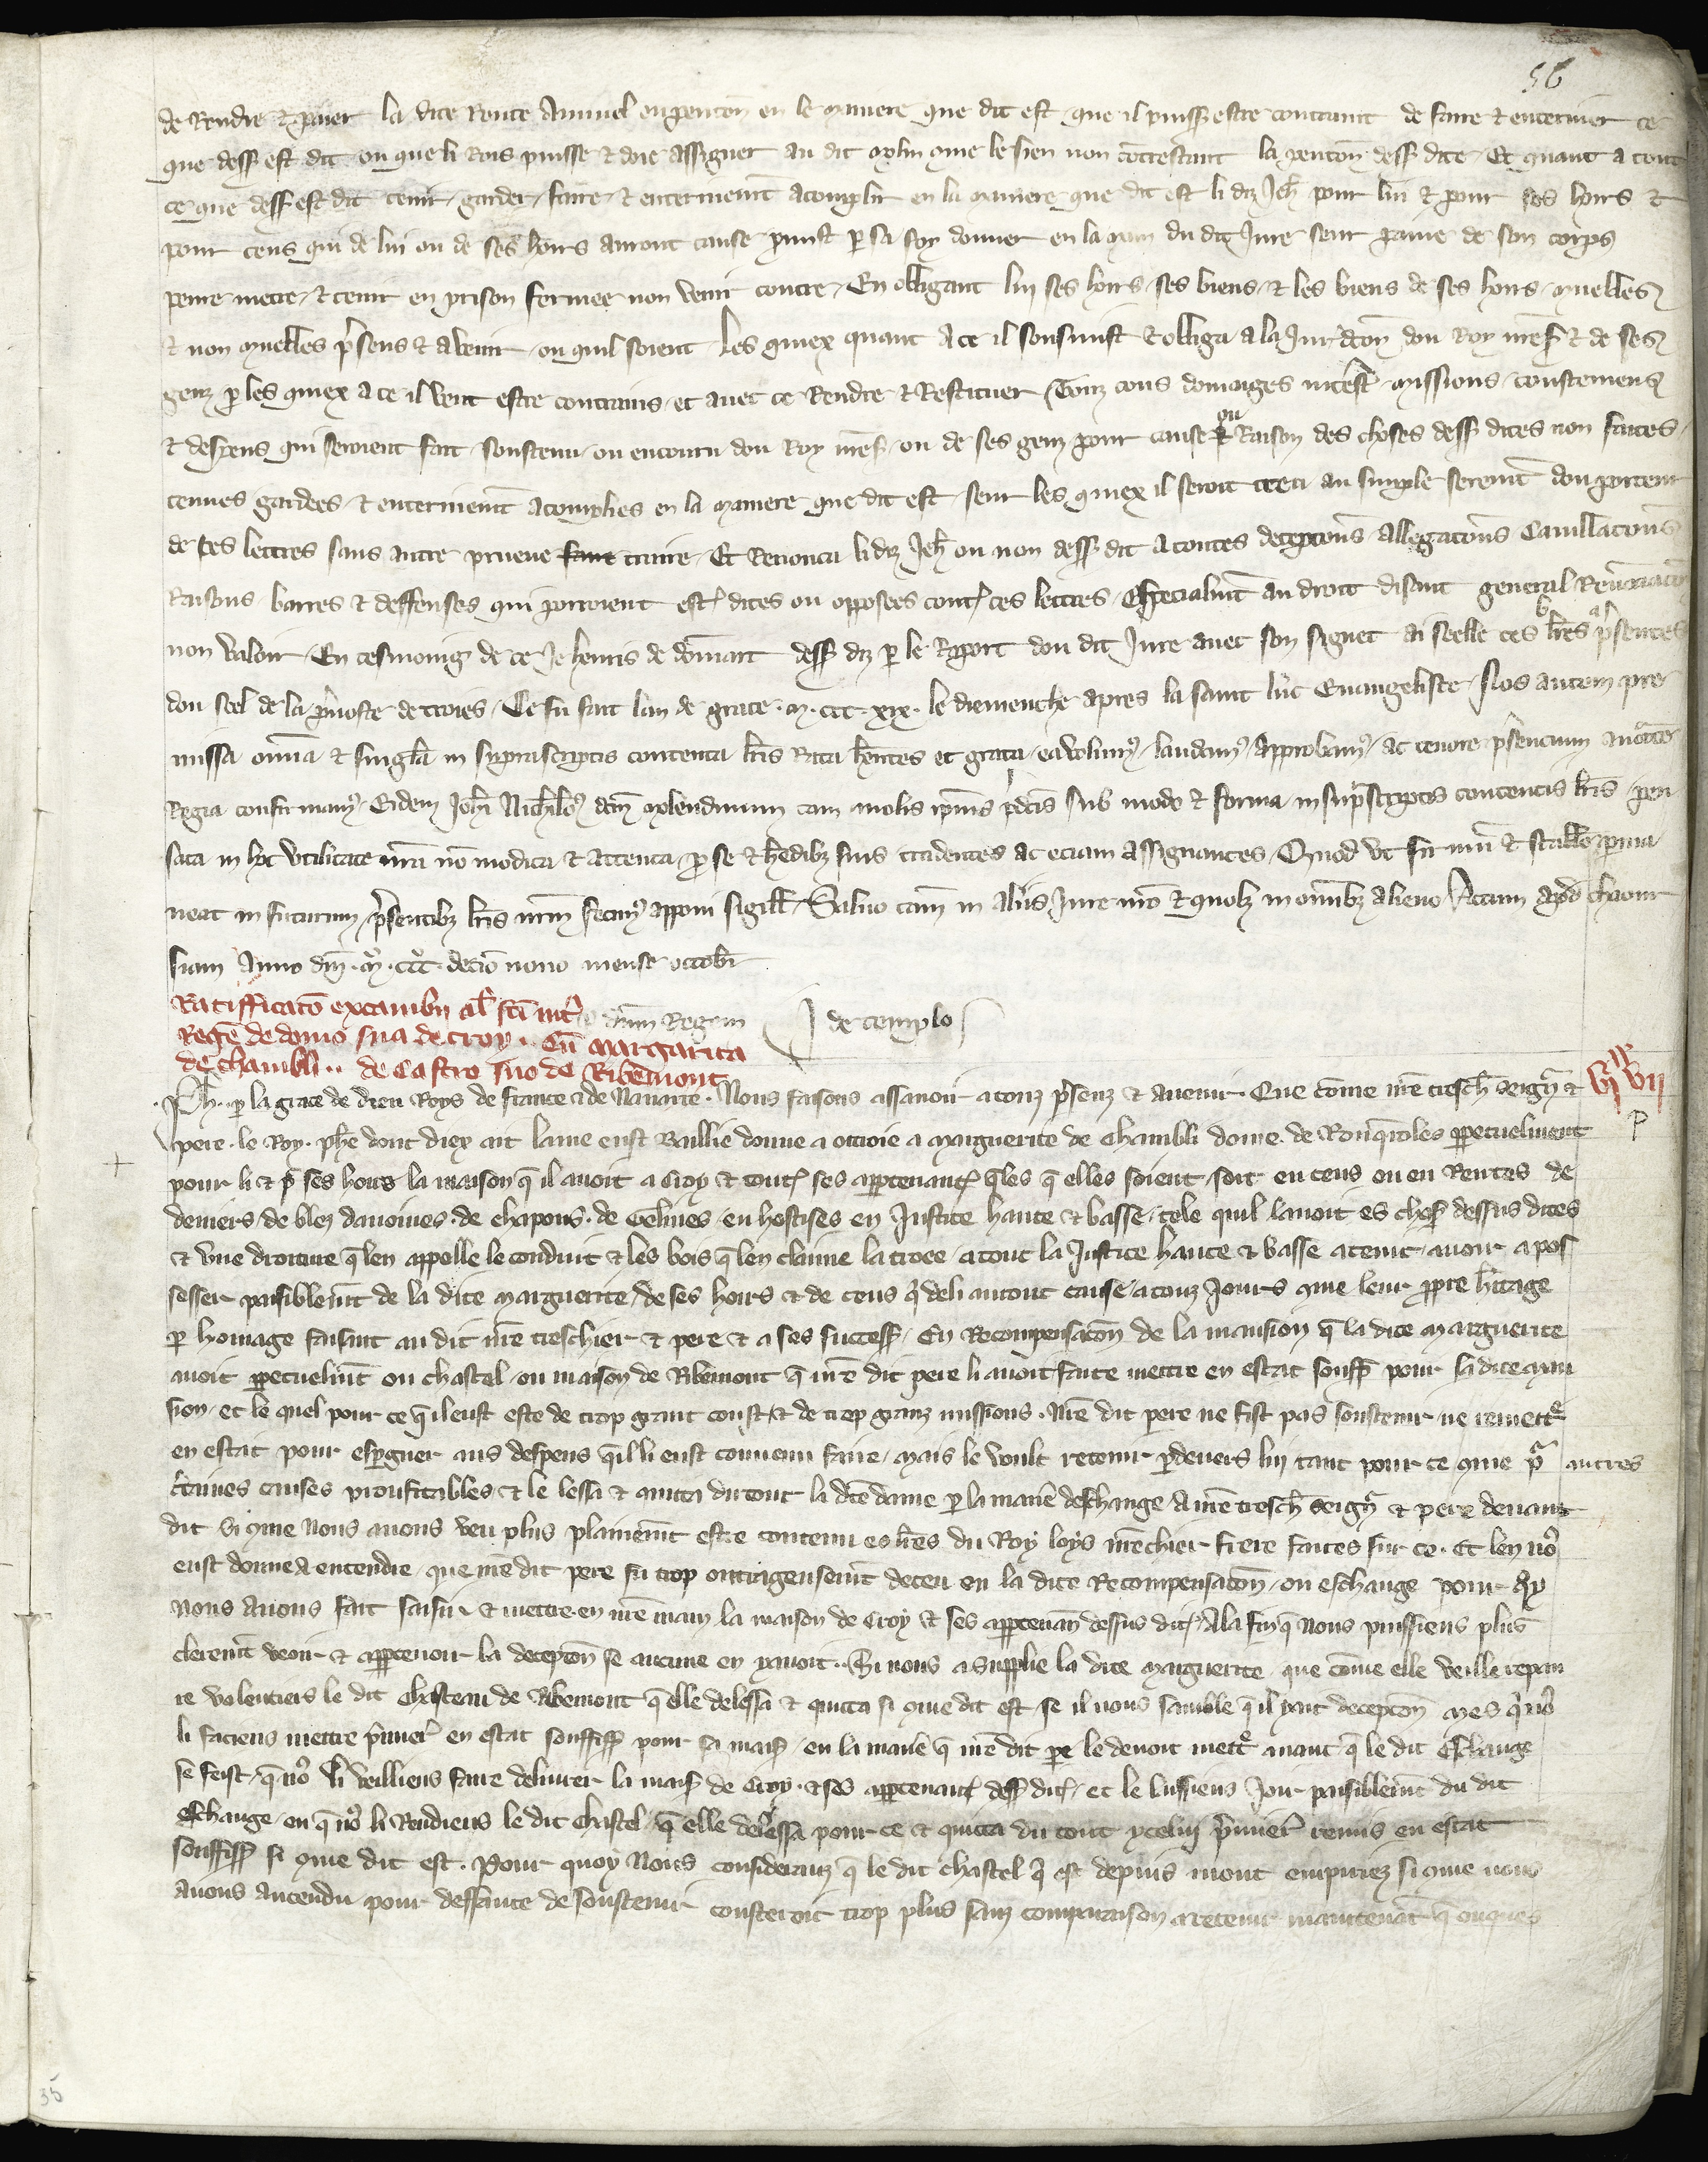 56
de Rendre & paier la dite Rente Annuel en pencon en le maniere que dit est que il puisse estre contraint de faire & enteriner ce
que dess est dit ou que li Rois puisse & doie assigner au dit molin cme le sien non contrestant la pencon dess dite Et quant a tout
ce que dess est dit tenir garder faire & enterinemt acomplir en la maniere que dit est li diz Jeh pour lui & pour ses hoirs &
pour ceus qui de lui ou de ses hoirs auront cause promist p sa foy donner en la main du dit Jure seur paine de son corps
penre mettre & tenir en prison fermee non venir contre En obligant lui ses hoirs ses biens & les biens de ses hoirs muebles
& non muebles psens & a venir ou quil soient Les quiex quant a ce il sousmist & obliga a la Juridcon dou Roy mess & de ses
genz p les quiex a ce il veut estre contrains et avec ce Rendre & Restituer touz cous domaiges interest missions coustemens
& despens qui seroient fait soustenu ou encouru dou Roy mess ou de ses genz pour cause ou Raison des choses dess dites non faites
tenues gardees & enterinemt acomplies en la maniere que dit est seur les quiex il seroit creu au simple seremt dou porteur
de ces lettres sans autre prueve faire traire Et Renonca li diz Jeh ou non dess dit a toutes decepcons allegacons Cavillacons
Raisons barres & deffenses qui porroient est dites ou opposees cont ces lettres Especialmt au droit disant general Renunciacon
non valoir En tesmoing de ce Je henris de dess diz p le Raport dou dit Jure avec son signet ai seelle ces lres psentes
dou seel de la pvoste de troies Ce fu fait lan de grace m ccc xix le diemenche apres la saint luc Evangeliste Nos autem pre
missa omia & singla in suprascriptis contenta lris Rata hentes et grata ea volum laudam approbam ac tenore psencium auctate
Regia confirmam Eidem Johi dcm molendinum cum molis ipius pdcis sub modo & forma in suprascriptis contentis lris pen
sata in hoc utilitate nra no modica & attenta p se & hedibz suis tradentes ac eciam assignantes Quod ut firmu & stabile pma
neat in futurum psentibz lris nrm fecim apponi sigill Salvo tam in aliis Jure nro & quolz in omibz alieno Actum apd
siam Anno dni m ccc decio nono mense octobr
Ratifficaco excambii al fci int dnum Regem de templo
Regē de domo sua de croy .. Cū margarita
de chambli .. de Castro suo de Ribemont
Ph p la grace de dieu Roys de france & de Navarre Nous faisons assavoir a touz psenz & avenir Que come nre tresch seigr &
pere le Roy phe dont diex ait lame eust Baillie donne & ottroie a marguerite de Chambli dame de Ronqroles ppetuelment
pour li & p ses hoirs la maison q il avoit a Croy & tout ses apptenanc qles q elles soient soit en cens ou en Rentes de
deniers de blez davoines de chapons de Gelines en hostises en Justice haute & basse tele quil lavoit es choses dessus dites
& une droiture q len appelle le conduit & les bois q len claime la troce a tout la Justice haute & basse a tenir avoir a pos
sesser paisiblemt de la dite marguerite de ses hoirs & de ceus q deli auront cause a touz Jours cme leur ppre hitage
p homage faisant au dit nre treschier & pere & a ses success En Recompensacon de la mansion q la dite marguerite
avoit ppetuelmt ou chastel ou maison de Ribemont q nre dit pere li avoit faite mettre en estat souffis pour sa dite man
sion et le quel pour ce q il eust este de trop grant coust & de trop granz missions Nre dit pere ne fist pas soustenir ne remett
en estat pour espgner aus despens q il li eust convenu faire mais le voult retenir pdevers lui tant pour ce cme p autres
ctaines causes proufitables & le lessa & quitta du tout la dte dame p la manie deschange a nre tresch seigr & pere devant
dit si cme Nous avons veu plus plainemt estre contenu es lres du Roy loys nre chier frere faites sur ce Et len no
eust donne a entendre que nre dit pere fu trop outrageusemt deceu en la dite Recompensacon ou eschange pour qy
Nous Avons fait saisir & mettre en nre main la maison de Croy & ses apptenan dessus dit A la fin q Nous puissiens plus
cleremt veoir & appcevoir la decepcon se aucune en yavoit Si nous a supplie la dite marguerite que come elle veille repan
re volentiers le dit Chasteau de Ribemont q elle delessa & quitta si cme dit est se il nous samble q il yait decepcon mes q no
li faciens mettre pmier en estat souffiss pour sa mais en la manie q nre dit pe le devoit mett avant q le dit Eschange
se feist q no li veilliens faire delivrer la mais de Croy & ses apptenanc dess dit et le lussiens Joir paisiblemt du dit
eschange ou q no li Rendiens le dit Chastel q elle delessa pour ce & quitta du tout ycelui pmier remis en estat
souffiss si cme dit est Pour quoy Nous consideranz q le dit chastel q est depuis mont empirez si cme nous
avons entendu pour deffaute de soustenir cousteroit trop plus sanz comparaison a retenir maintenat q onques
VII
P
35